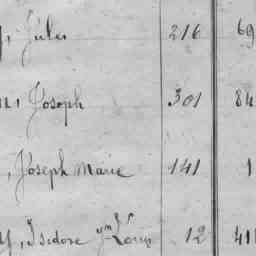 , Jules 216 69
, Joseph 301 84
, Joseph Marie 141 1
y, Isidore Louis 12 411